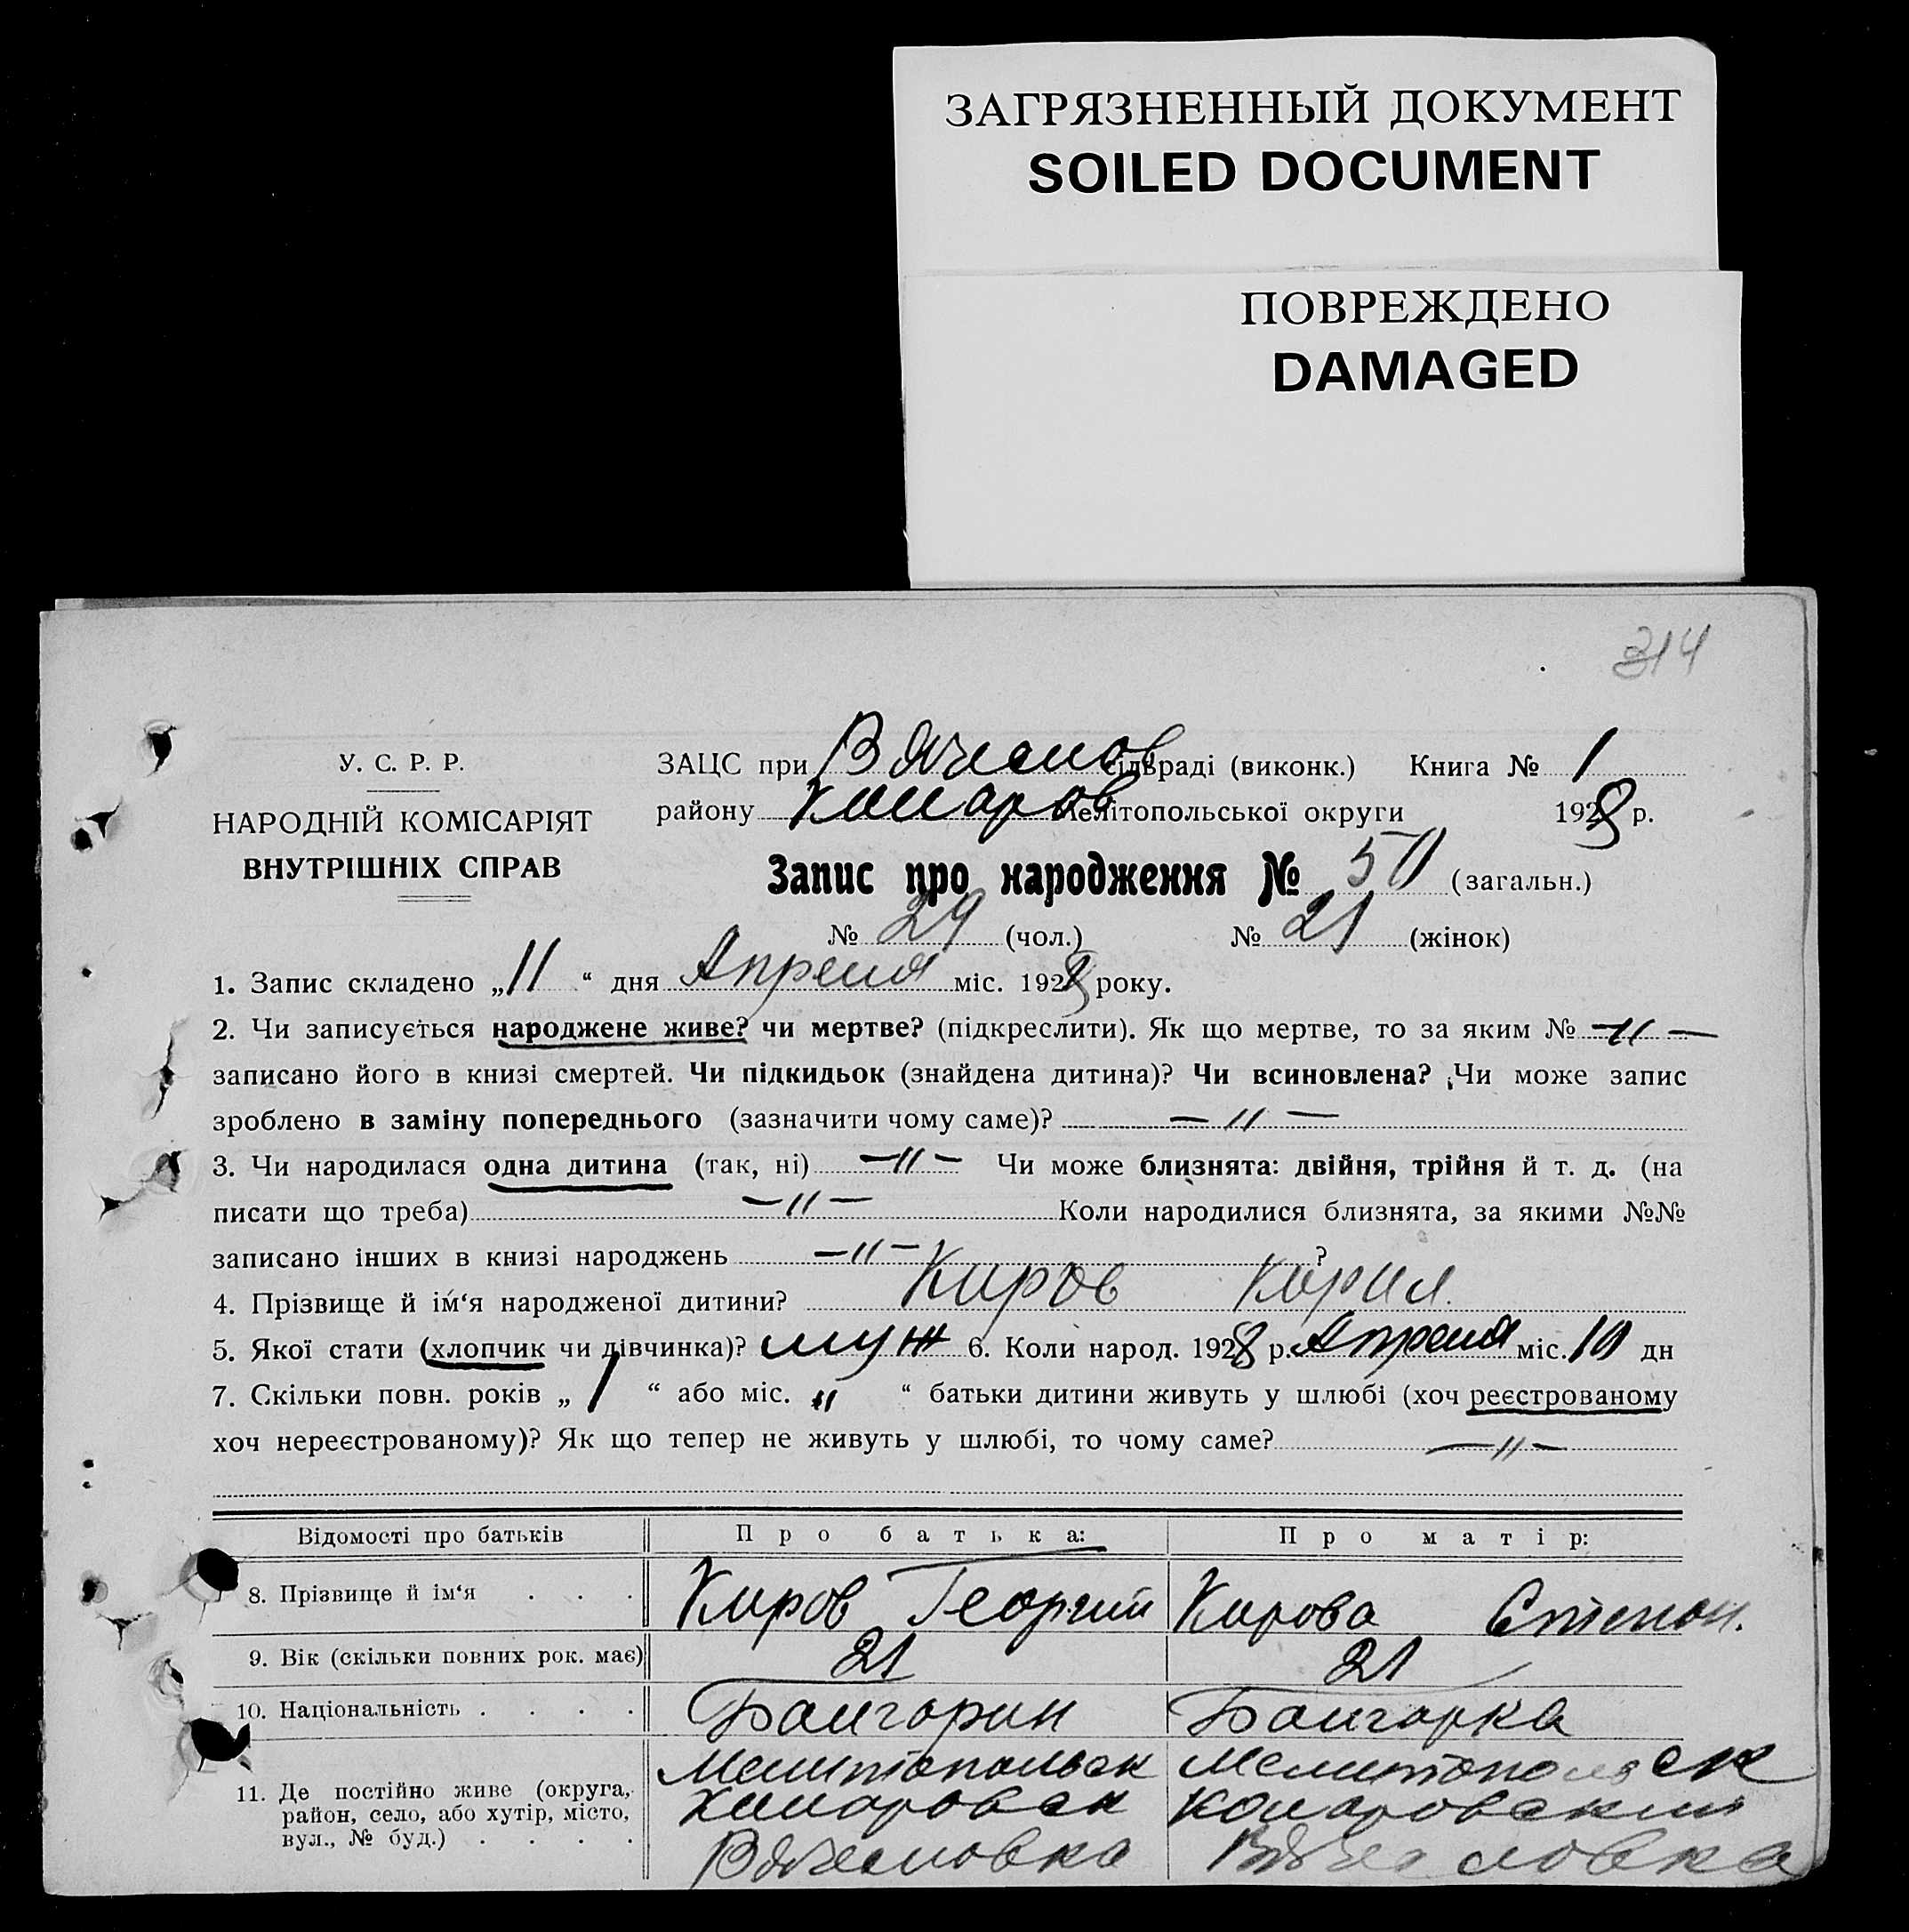 ЗАГРЯЗНЕННЫЙ ДОКУМЕНТ
SOILED DOCUMENT
ПОВРЕЖДЕНО
DAMAGED
314
У. С. Р. Р.
НАРОДНІЙ КОМІСАРІЯТ
ВНУТРІШНІХ СПРАВ
ЗАЦС при Вячеслов сільраді (виконк.) Книга № 1
району Комаров Мелітопольської округи 1928 р.
Запис про народження № 50 (загальн.)
№ 29 (чол.) № 21 (жінок)
1. Запис складено „11“ дня Апреля міс. 1928 року.
2. Чи записується народжене живе? чи мертве? (підкреслити). Як що мертве, то за яким № —11—
записано його в книзі смертей. Чи підкидьок (знайдена дитина)? Чи всиновлена? Чи може запис
зроблено в заміну попереднього (зазначити чому саме)? —11—
3. Чи народилася одна дитина (так, ні) —11— Чи може близнята: двійня, трійня й т. д. (на
писати що треба) —11— Коли народилися близнята, за якими №№
записано інших в книзі народжень —11— ?
4. Прізвище й ім‘я народженої дитини? Киров Кирил.
5. Якої стати (хлопчик чи дівчинка)? муж 6. Коли народ. 1928 р. Апреля міс. 10 дн
7. Скільки повн. років „1“ або міс. „ “ батьки дитини живуть у шлюбі (хоч реєстрованому
хоч нереєстрованому)? Як що тепер не живуть у шлюбі, то чому саме? —11—
Відомості про батьків Про батька: Про матір:
8. Прізвище й ім‘я . . . Киров Георгий Кирова Степан.
9. Вік (скільки повних рок. має) 21 21
10. Національність . . . . Болгарин Болгарка
11. Де постійно живе (округа, район, село, або хутір, місто, вул., № буд.) . . . . Мелитопольск Мелитопольск
Комаровск Комаровский
Вячесловка Вячесловка